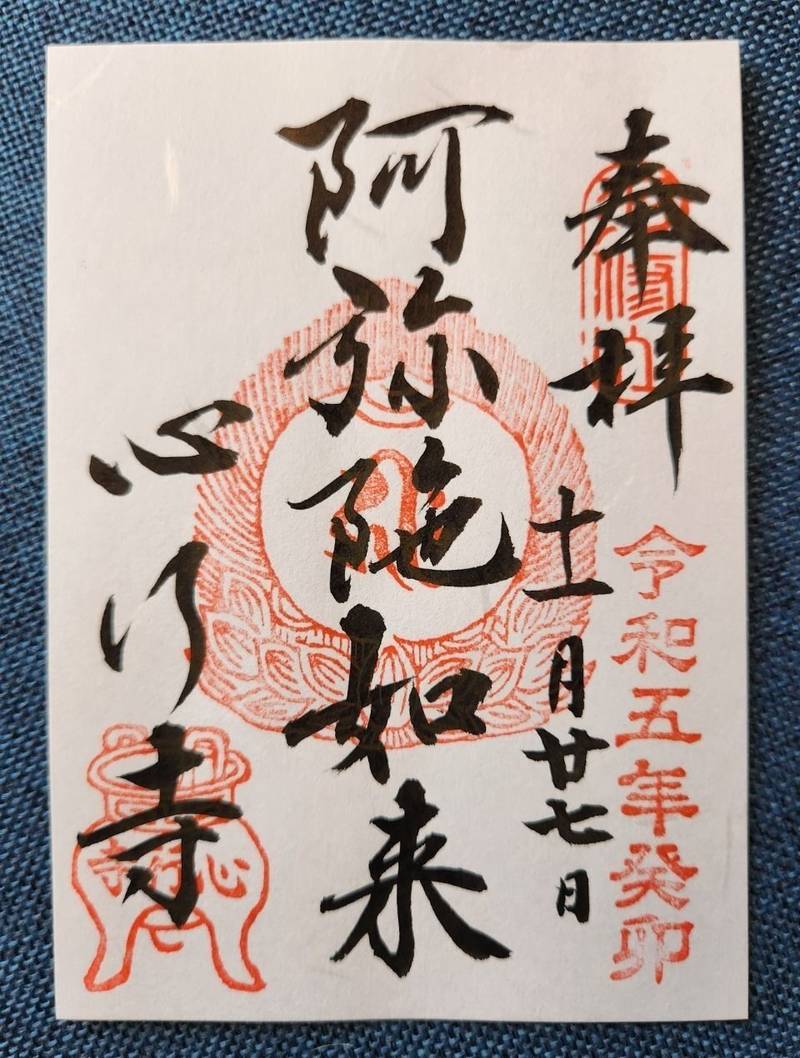 奉拝
令和五年癸卯
十一月廿七日
阿弥陁如来
心行寺
心行寺